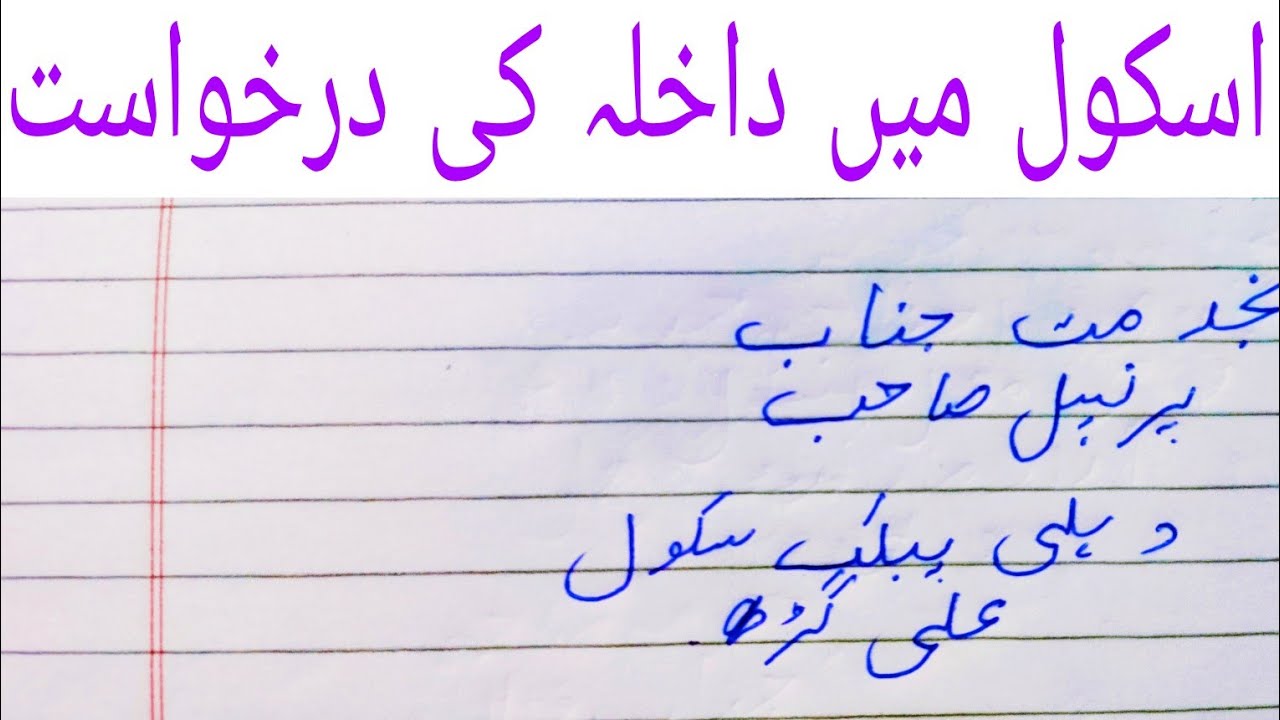 اسکول میں داخلہ کی درخواست
بخدمت جناب
پرنسپل صاحب
دہلی پبلک سکول
علی گڑھ